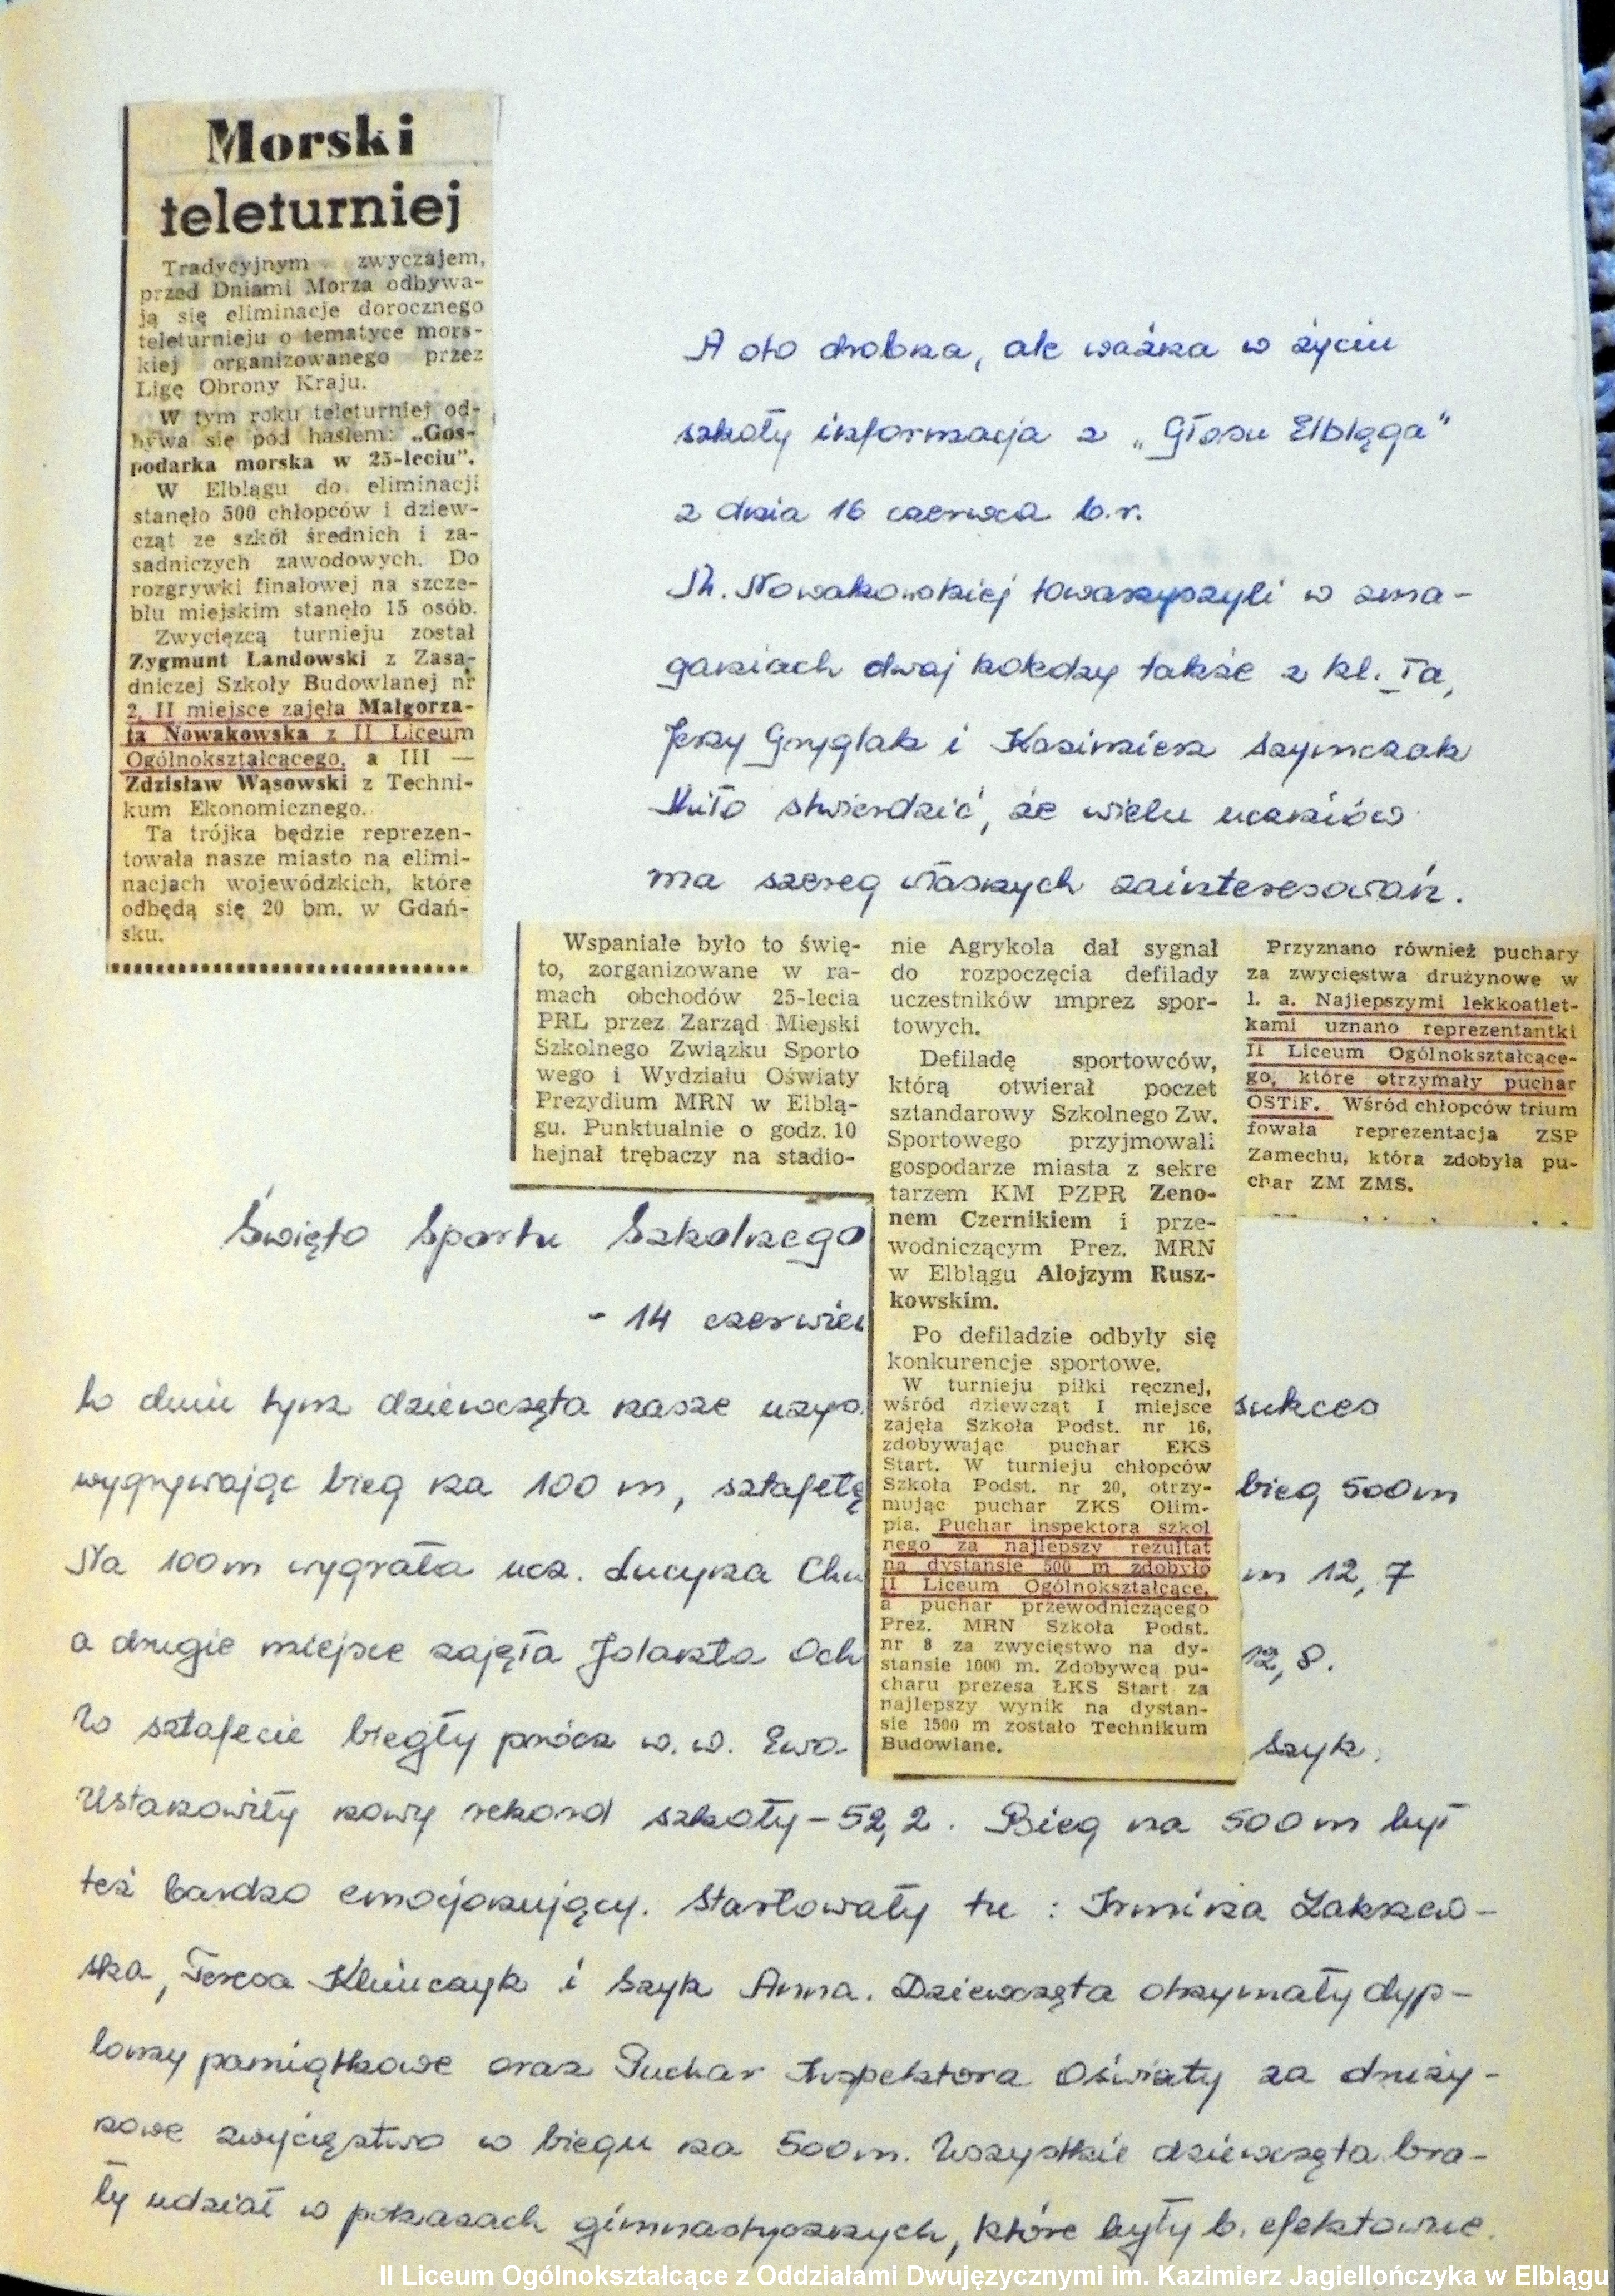 Morski
teleturniej
Tradycyjnym zwyczajem,
przed Dniami Morza odbywa-
ją się eliminacje dorocznego
teleturnieju o tematyce mors-
kiej organizowanego przez
Ligę Obrony Kraju.
W tym roku teleturniej od-
bywa się pod hasłem: „Gos-
podarka morska w 25-leciu".
W Elblągu do eliminacji
stanęło 500 chłopców i dziew-
cząt ze szkół średnich i za-
sadniczych zawodowych. Do
rozgrywki finałowej na szcze-
blu miejskim stanęło 15 osób.
Zwycięzcą turnieju został
Zygmunt Landowski z Zasa-
dniczej Szkoły Budowlanej nr
2, II miejsce zajęła Małgorza-
ta Nowakowska z II Liceum
Ogólnokształcącego, a III —
Zdzisław Wąsowski z Techni-
kum Ekonomicznego.
Ta trójka będzie reprezen-
towała nasze miasto na elimi-
nacjach wojewódzkich, które
odbędą się 20 bm. w Gdań-
sku.
A oto drobna, ale ważna w życiu
szkoły informacja z „Głosu Elbląga"
z dnia 16 czerwca b.r.
M. Nowakowskiej towarzyszyli w zma-
ganiach dwaj koledzy także z kl. Ia,
Jerzy Gryglak i Kazimierz Szymczak
Miło stwierdzić, że wielu uczniów
ma szereg własnych zainteresowań.
Wspaniałe było to świę-
to, zorganizowane w ra-
mach obchodów 25-lecia
PRL przez Zarząd Miejski
Szkolnego Związku Sporto
wego i Wydziału Oświaty
Prezydium MRN w Elblą-
gu. Punktualnie o godz. 10
hejnał trębaczy na stadio-
nie Agrykola dał sygnał
do rozpoczęcia defilady
uczestników imprez spor-
towych.
Defiladę sportowców,
którą otwierał poczet
sztandarowy Szkolnego Zw.
Sportowego przyjmowali
gospodarze miasta z sekre
tarzem KM PZPR Zeno-
nem Czernikiem i prze-
wodniczącym Prez. MRN
w Elblągu Alojzym Rusz-
kowskim.
Po defiladzie odbyły się
konkurencje sportowe.
W turnieju piłki ręcznej,
wśród dziewcząt I miejsce
zajęła Szkoła Podst. nr 16,
zdobywając puchar EKS
Start. W turnieju chłopców
Szkoła Podst. nr 20, otrzy-
mując puchar ZKS Olim-
pia. Puchar inspektora szkol
nego za najlepszy rezultat
na dystansie 500 m zdobyło
II Liceum Ogólnokształcące,
a puchar przewodniczącego
Prez. MRN Szkoła Podst.
nr 8 za zwycięstwo na dy-
stansie 1000 m. Zdobywcą pu-
charu prezesa ŁKS Start za
najlepszy wynik na dystan-
sie 1500 m zostało Technikum
Budowlane.
Przyznano również puchary
za zwycięstwa drużynowe w
l. a. Najlepszymi lekkoatlet-
kami uznano reprezentantki
II Liceum Ogólnokształcące-
go, które otrzymały puchar
OSTiF. Wśród chłopców trium
fowała reprezentacja ZSP
Zamechu, która zdobyła pu-
char ZM ZMS.
Święto Sportu Szkolnego
- 14 czerwiec
W dniu tym dziewczęta nasze sukces
wygrywając bieg na 100 m, sztafetę bieg 500m
Na 100m wygrała ucz. Lucyna Chu m 12,7
a drugie miejsce zajęła Jolanta Och 12,8.
W sztafecie biegły prócz w.w. Ewa Szyk.
Ustanowiły nowy rekord szkoły - 52,2. Bieg na 500m był
też bardzo emocjonujący. Startowały tu : Irmina Zakrzew-
ska, Teresa Klimczyk i Szyk Anna. Dziewczęta otrzymały dyp-
lomy pamiątkowe oraz Puchar Inspektora Oświaty za druży-
nowe zwycięstwo w biegu na 500m. Wszystkie dziewczęta bra-
ły udział w pokazach gimnastycznych, które były b. efektowne.
II Liceum Ogólnokształcące z Oddziałami Dwujęzycznymi im. Kazimierz Jagiellończyka w Elblągu